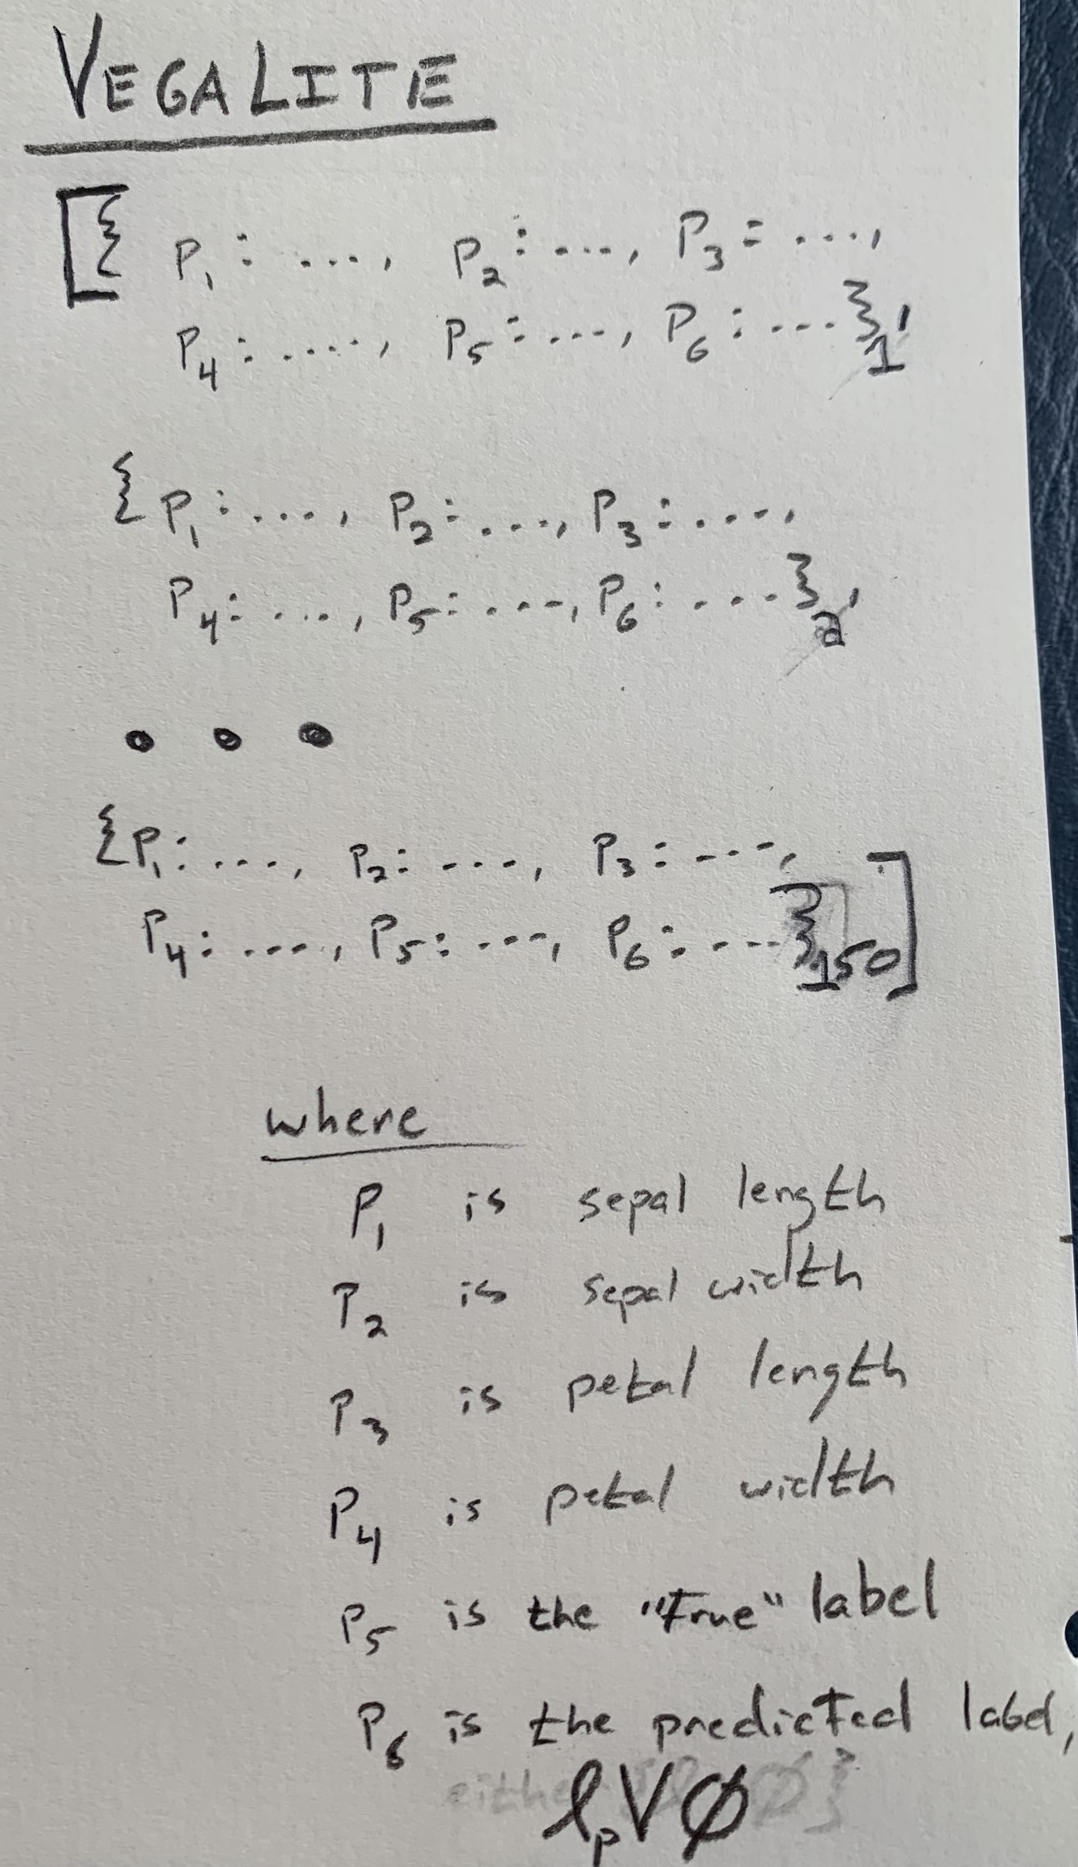 VEGALITE
[{ P₁ : ...., P₂ : ...., P₃ : ....,
P₄ : ....., P₅ : ...., P₆ : ....}₁,
{ P₁ : ...., P₂ : ...., P₃ : ....,
P₄ : ...., P₅ : ...., P₆ : ....}₂,
• • •
{P₁ : ...., P₂ : ...., P₃ : ....,
P₄ : ...., P₅ : ...., P₆ : ....}₁₅₀]
where
P₁ is sepal length
P₂ is sepal width
P₃ is petal length
P₄ is petal width
P₅ is the "True" label
P₆ is the predicted label,
ℓₚ V ∅